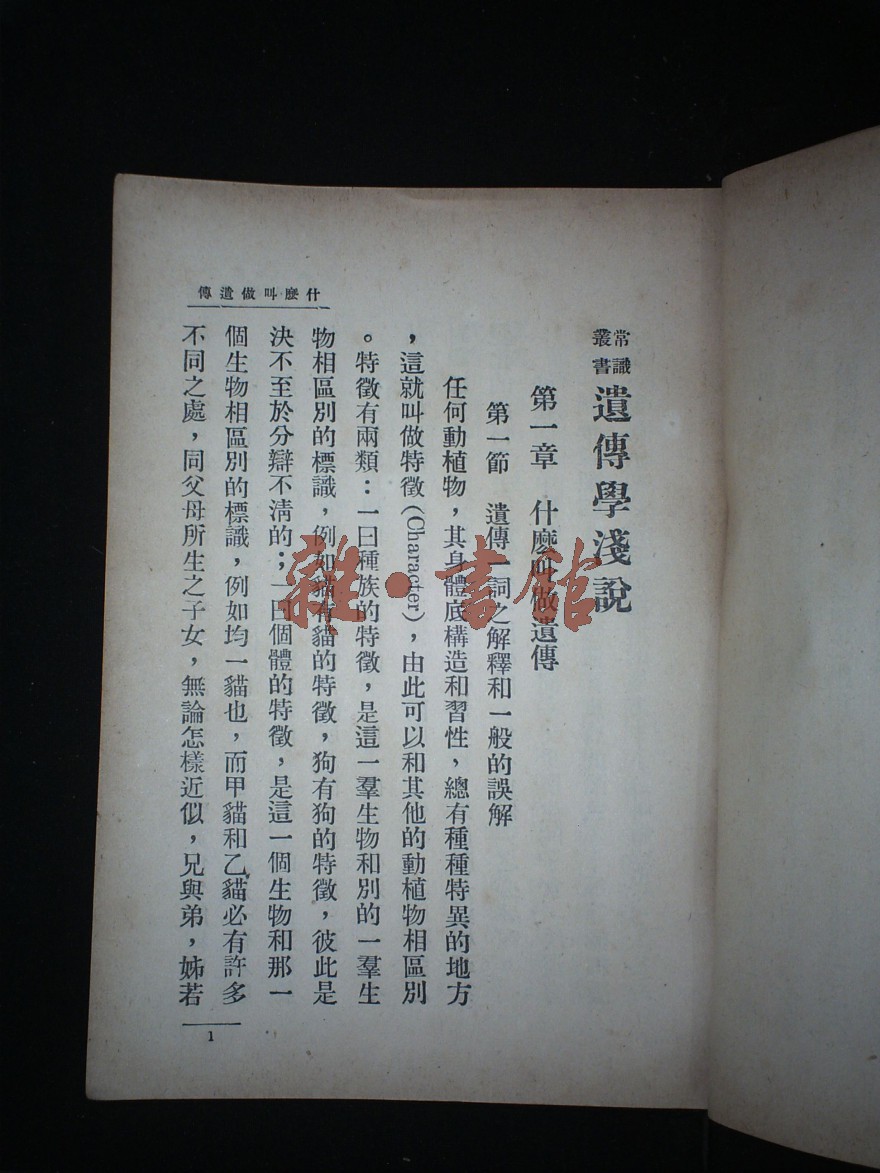 常識
叢書
遺傳學淺說
第一章　什麼叫做遺傳
第一節　遺傳一詞之解釋和一般的誤解
任何動植物，其身體底構造和習性，總有種種特異的地方
，這就叫做特徵(Character)，由此可以和其他的動植物相區別
。特徵有兩類：一曰種族的特徵，是這一羣生物和別的一羣生
物相區別的標識，例如貓有貓的特徵，狗有狗的特徵，彼此是
決不至於分辯不淸的；一曰個體的特徵，是這一個生物和那一
個生物相區別的標識，例如均一貓也，而甲貓和乙貓必有許多
不同之處，同父母所生之子女，無論怎樣近似，兄與弟，姊若
什麼叫做遺傳
1
雜·書館